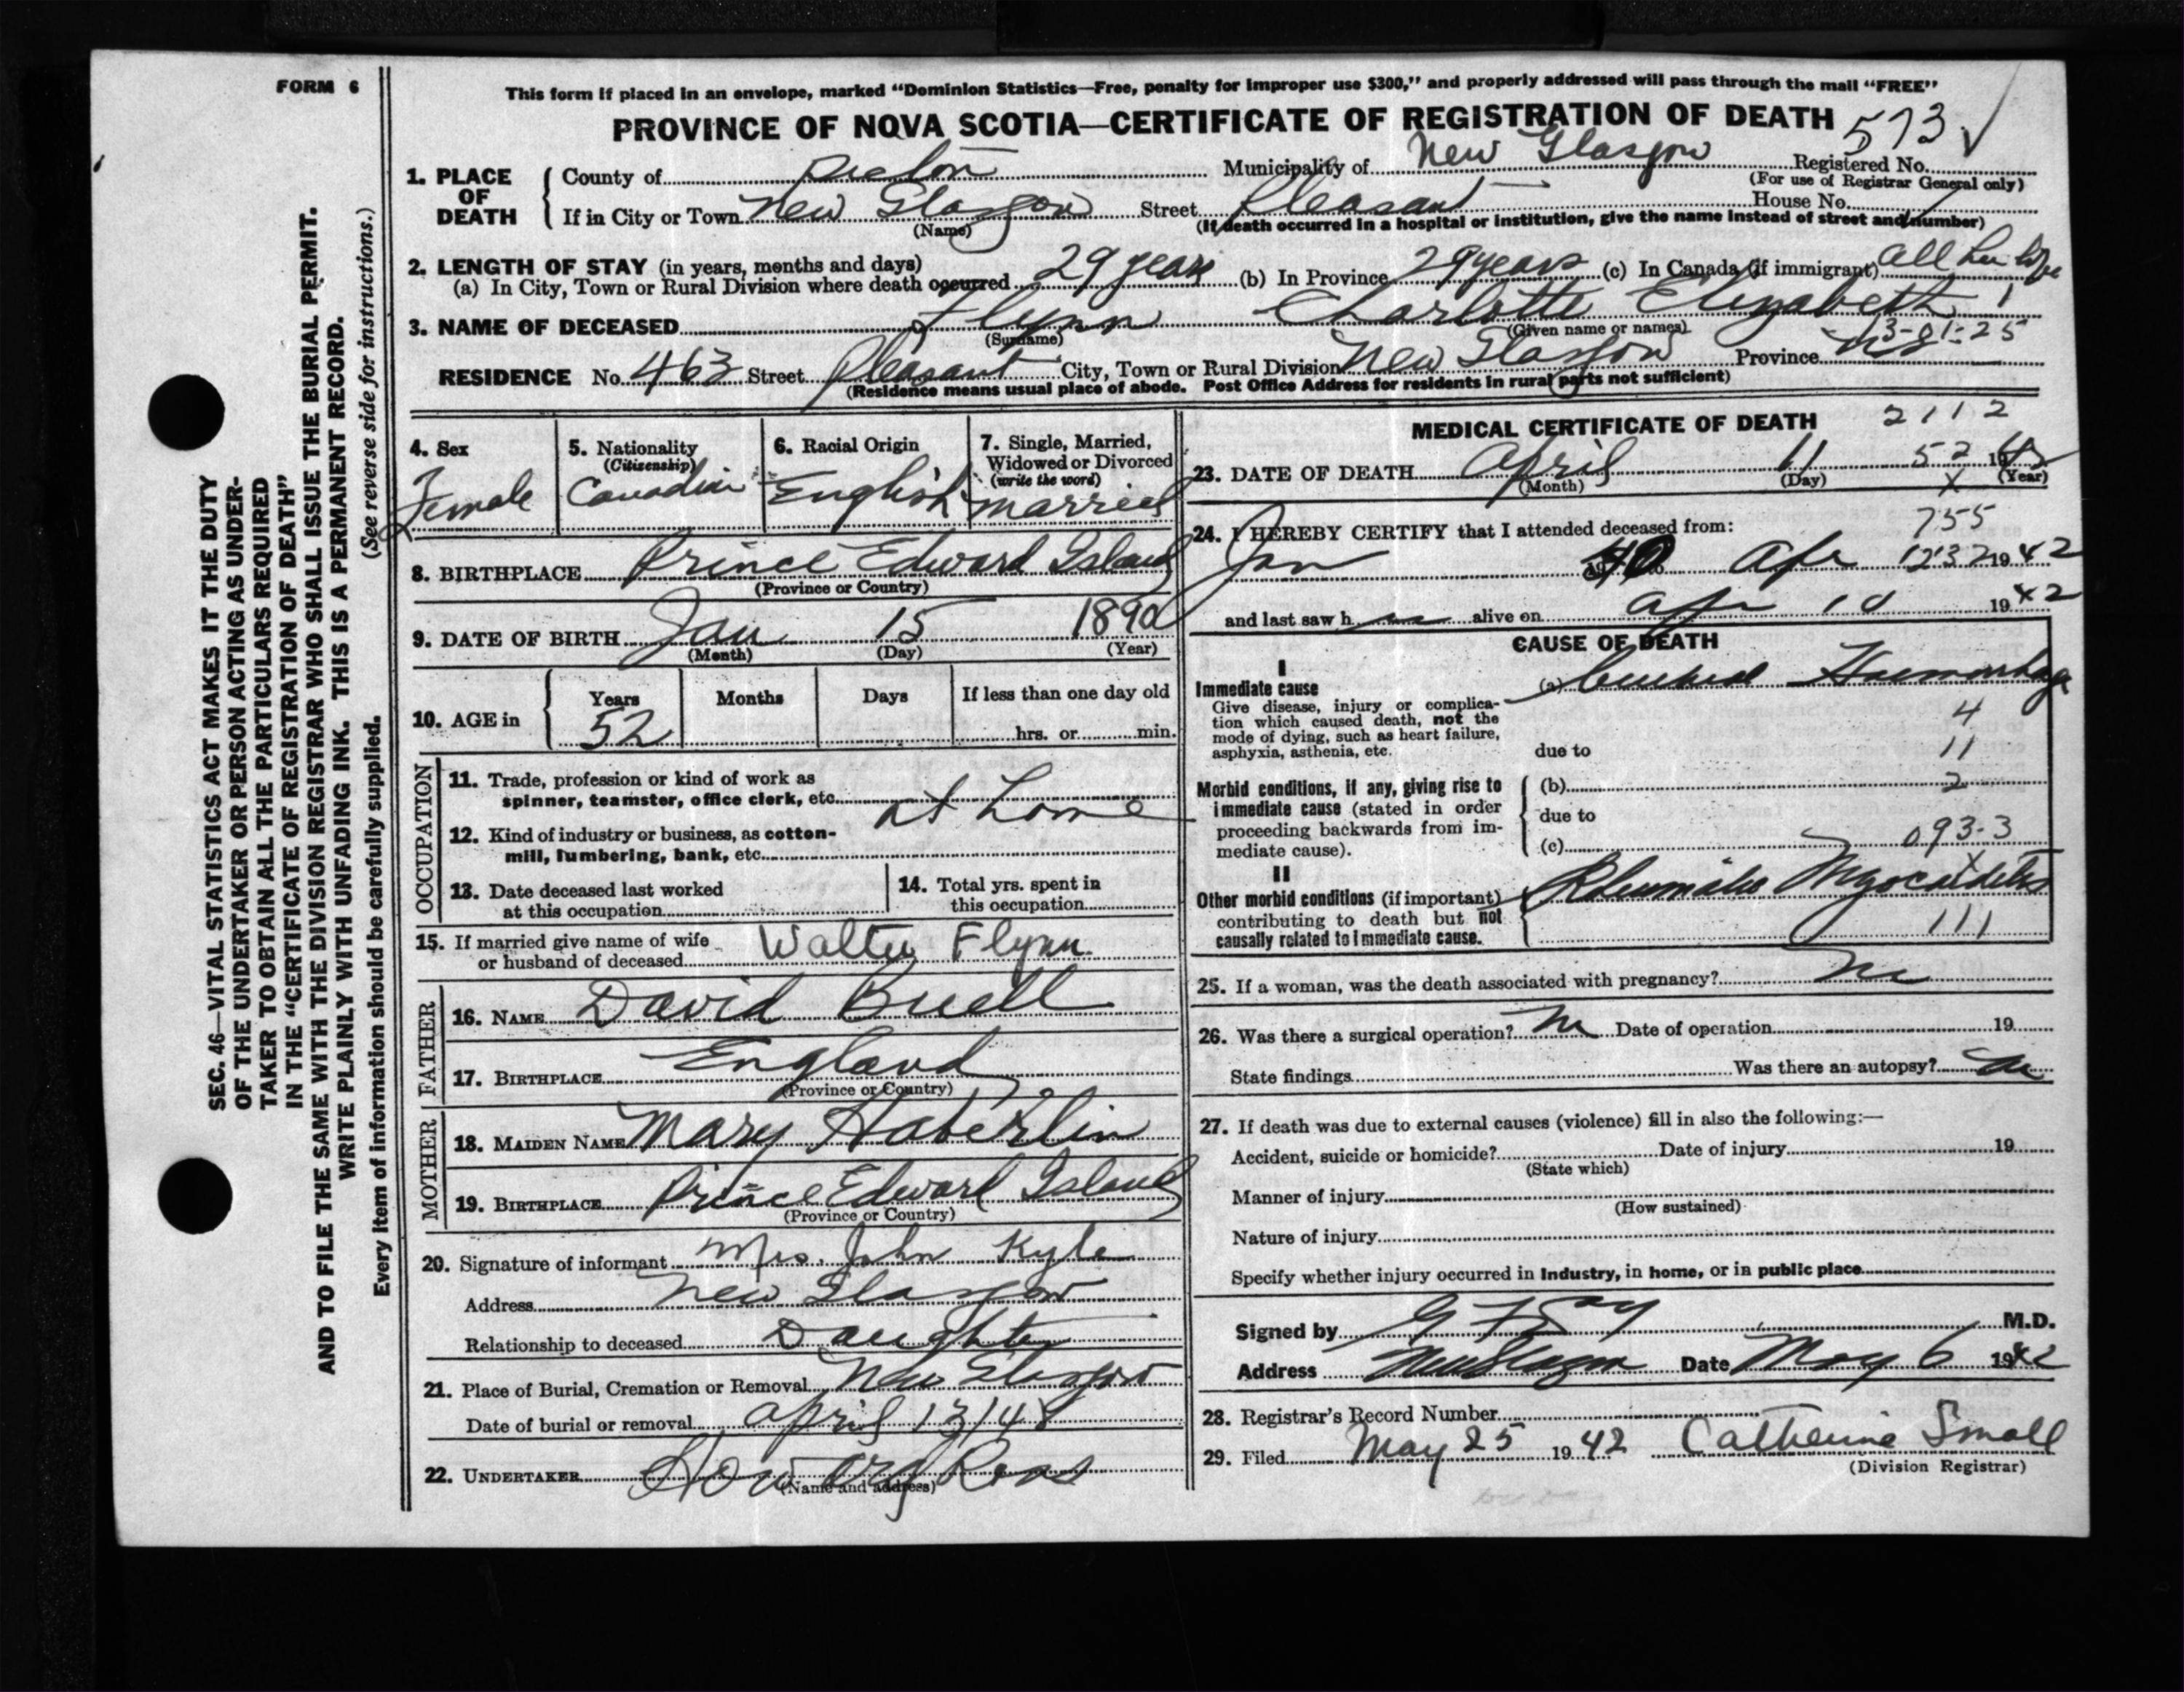 FORM 6
This form if placed in an envelope, marked “Dominion Statistics—Free, penalty for improper use $300,” and properly addressed will pass through the mail “FREE”
PROVINCE OF NOVA SCOTIA—CERTIFICATE OF REGISTRATION OF DEATH
573
1. PLACE OF DEATH
County of Pictou Municipality of New Glasgow Registered No.
(For use of Registrar General only)
If in City or Town New Glasgow Street Pleasant House No.
(Name) (If death occurred in a hospital or institution, give the name instead of street and number)
2. LENGTH OF STAY (in years, months and days)
(a) In City, Town or Rural Division where death occurred 29 years (b) In Province 29 years (c) In Canada (if immigrant) all her life
3. NAME OF DECEASED Flynn Charlotte Elizabeth
(Surname) (Given name or names)
3-01-25
RESIDENCE No. 463 Street Pleasant City, Town or Rural Division New Glasgow Province
(Residence means usual place of abode. Post Office Address for residents in rural parts not sufficient)
4. Sex
Female
5. Nationality
(Citizenship)
Canadian
6. Racial Origin
English
7. Single, Married,
Widowed or Divorced
(write the word)
married
8. BIRTHPLACE Prince Edward Island
(Province or Country)
9. DATE OF BIRTH Jan 15 1890
(Month) (Day) (Year)
10. AGE in
Years Months Days If less than one day old
52 hrs. or min.
OCCUPATION
11. Trade, profession or kind of work as
spinner, teamster, office clerk, etc.
at home
12. Kind of industry or business, as cotton-
mill, lumbering, bank, etc.
13. Date deceased last worked
at this occupation
14. Total yrs. spent in
this occupation
15. If married give name of wife
or husband of deceased Walter Flynn
FATHER
16. NAME David Buell
17. BIRTHPLACE England
(Province or Country)
MOTHER
18. MAIDEN NAME Mary Haberlin
19. BIRTHPLACE Prince Edward Island
(Province or Country)
20. Signature of informant Mrs. John Kyle
Address New Glasgow
Relationship to deceased Daughter
21. Place of Burial, Cremation or Removal New Glasgow
Date of burial or removal april 13/
22. UNDERTAKER Howard Ross
(Name and address)
MEDICAL CERTIFICATE OF DEATH
2112
23. DATE OF DEATH April 11 52 19
(Month) (Day) (Year)
x
24. I HEREBY CERTIFY that I attended deceased from:
755
Jan 40 to Apr 1232 1942
and last saw h alive on Apr 10 1942
CAUSE OF DEATH
I
Immediate cause
Give disease, injury or complica-
tion which caused death, not the
mode of dying, such as heart failure,
asphyxia, asthenia, etc.
(a) Cerebral Haemorrhage
4
due to
11
Morbid conditions, if any, giving rise to
immediate cause (stated in order
proceeding backwards from im-
mediate cause).
(b) 2
due to
(c) 093-3
x
II
Other morbid conditions (if important)
contributing to death but not
causally related to immediate cause.
Rheumatic Myocarditis
111
25. If a woman, was the death associated with pregnancy? no
26. Was there a surgical operation? no Date of operation 19
State findings Was there an autopsy? no
27. If death was due to external causes (violence) fill in also the following:—
Accident, suicide or homicide? Date of injury 19
(State which)
Manner of injury
(How sustained)
Nature of injury
Specify whether injury occurred in Industry, in home, or in public place
Signed by M.D.
Address New Glasgow Date May 6 1942
28. Registrar's Record Number
29. Filed May 25 1942 Catherine Small
(Division Registrar)
SEC. 46—VITAL STATISTICS ACT MAKES IT THE DUTY
OF THE UNDERTAKER OR PERSON ACTING AS UNDER-
TAKER TO OBTAIN ALL THE PARTICULARS REQUIRED
IN THE “CERTIFICATE OF REGISTRATION OF DEATH”
AND TO FILE THE SAME WITH THE DIVISION REGISTRAR WHO SHALL ISSUE THE BURIAL PERMIT.
WRITE PLAINLY WITH UNFADING INK. THIS IS A PERMANENT RECORD.
(See reverse side for instructions.)
Every item of information should be carefully supplied.